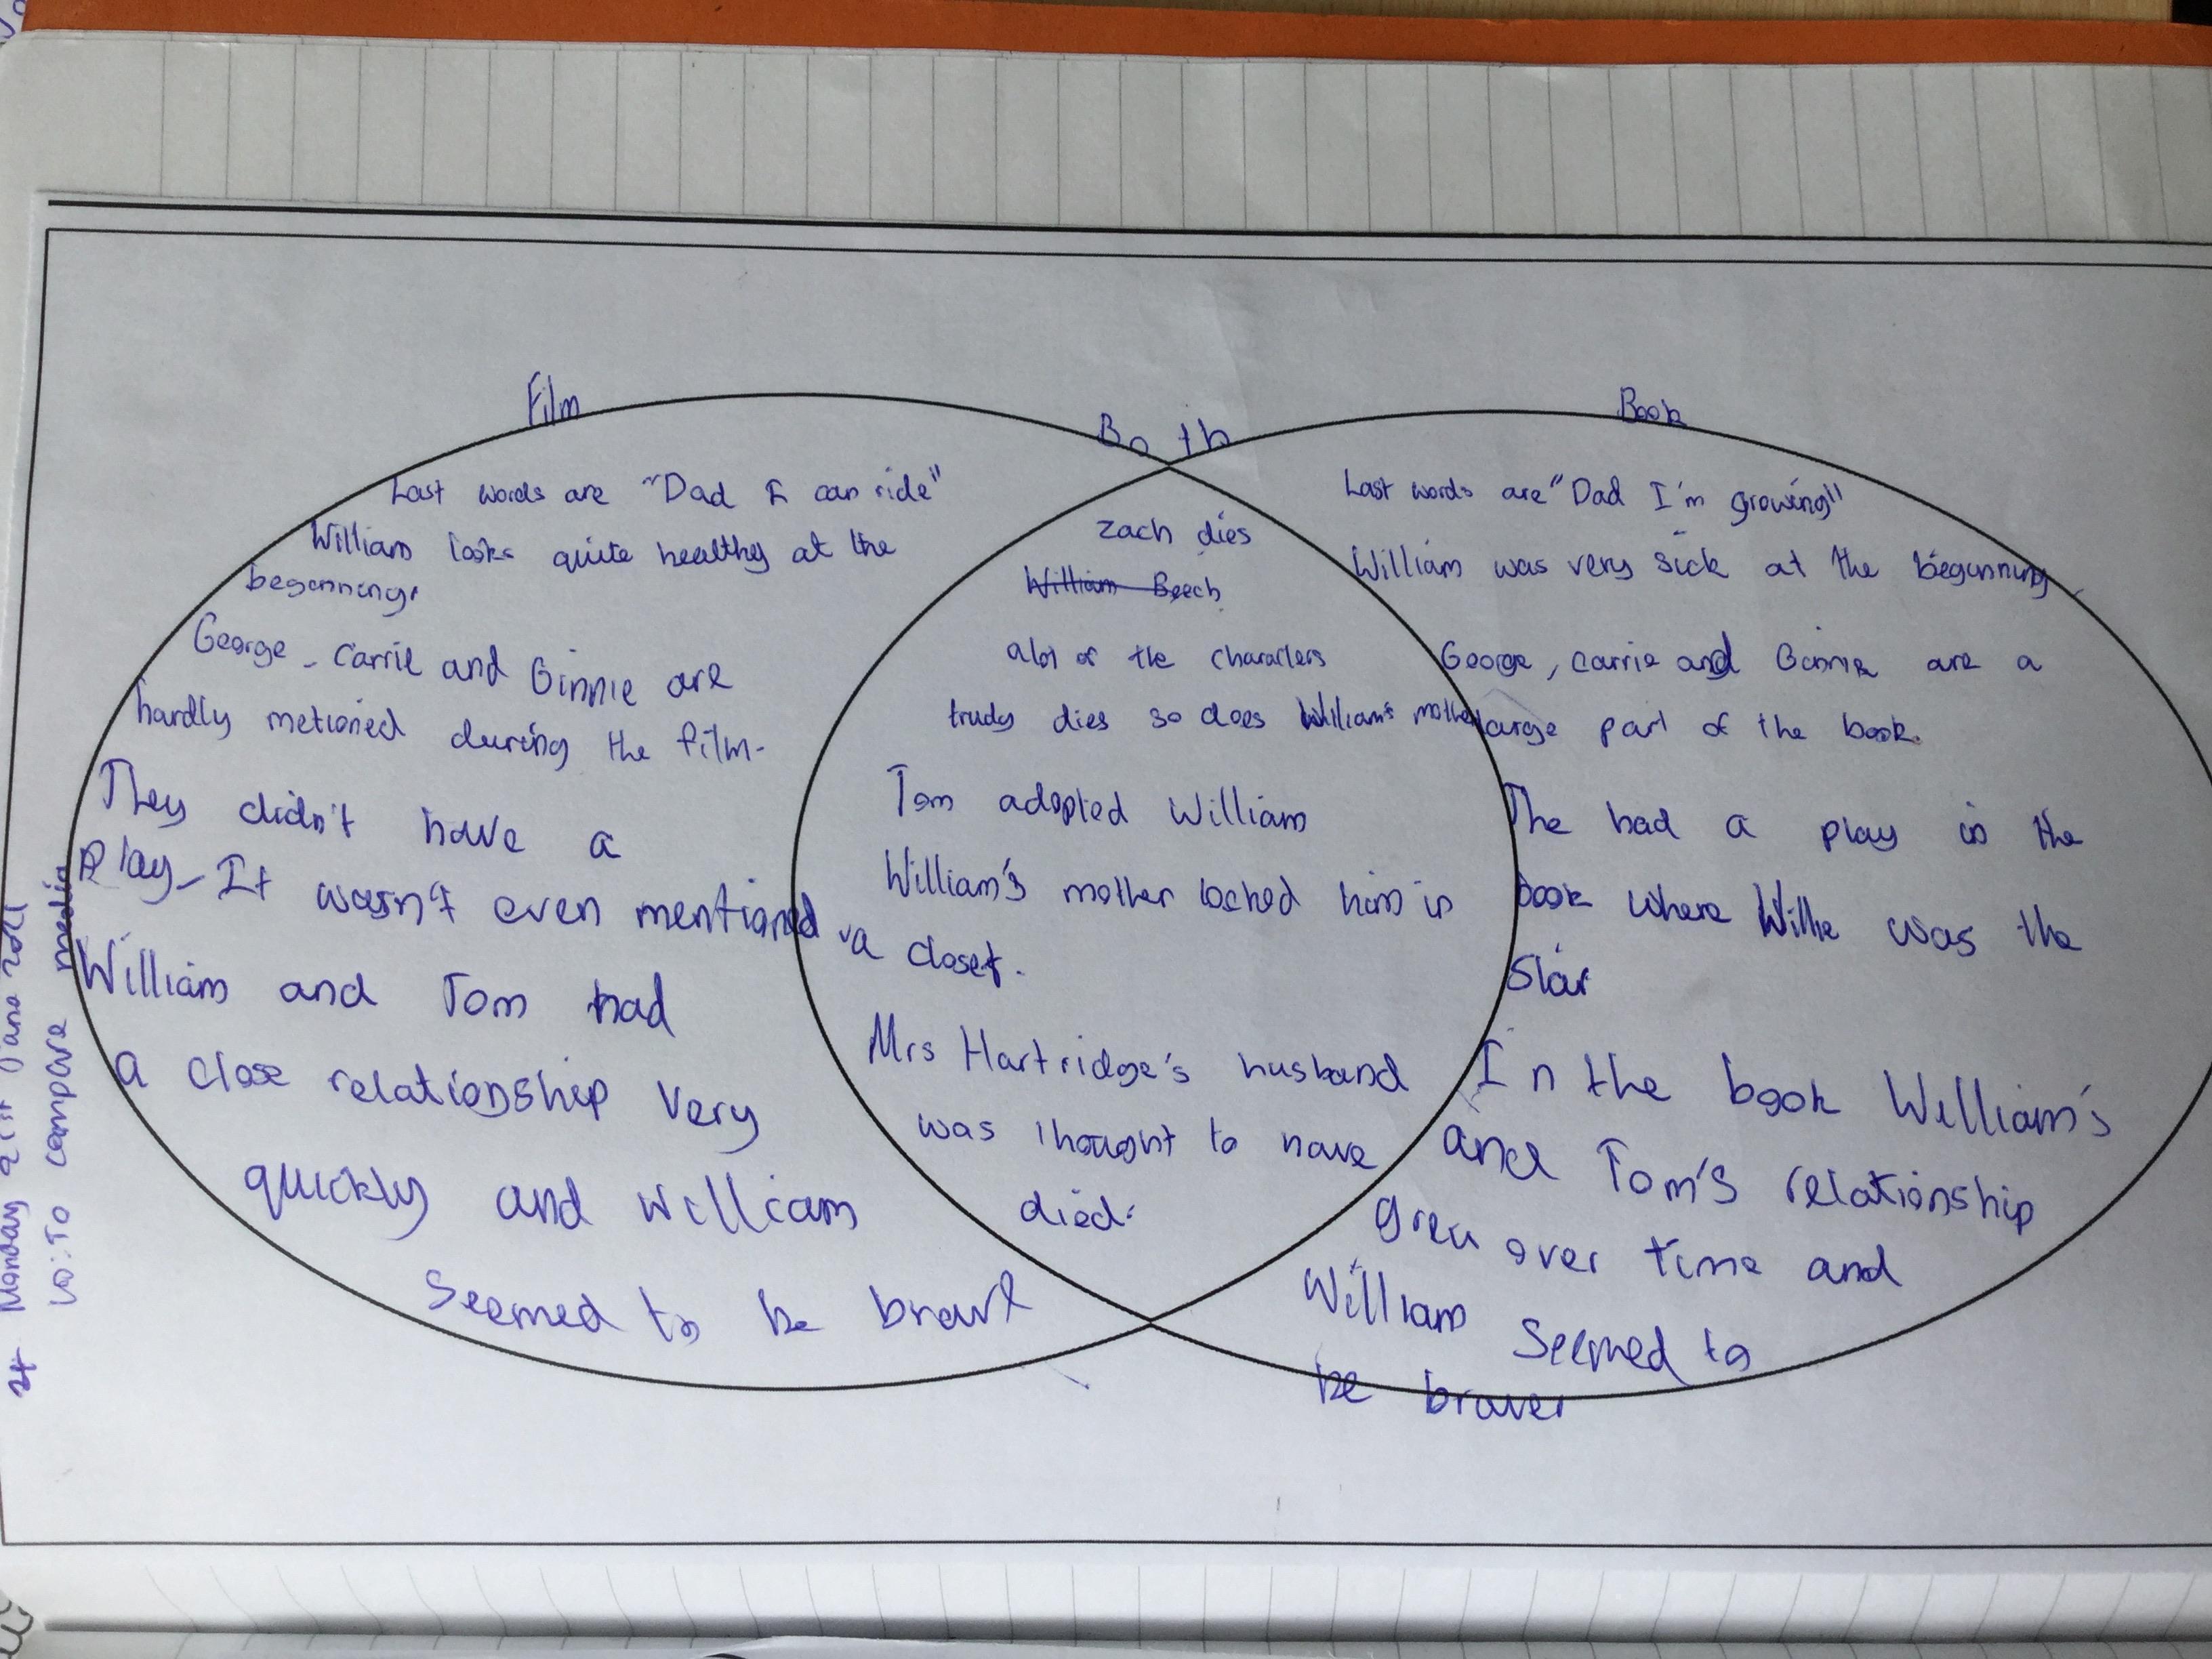 Film
Both
Book
Last words are "Dad I can ride"
William looks quite healthy at the
beginning.
George, Carrie and Ginnie are
hardly metioned during the film.
They didn't have a
play. It wasn't even mentioned
William and Tom had
a close relationship very
quickly and william
Seemed to be brave
Zach dies
William Beech
alot of the characters
trudy dies so does William's mother
Tom adopted William
William's mother locked him in
a closet.
Mrs Hartridge's husband
was thought to have
died.
Last words are "Dad I'm growing"
William was very sick at the beginning
George, carrie and Ginnie are a
large part of the book.
The had a play in the
book where Willie was the
Star
In the book William's
and Tom's relationship
grew over time and
William Seemed to
be braver
Monday June
To compare media